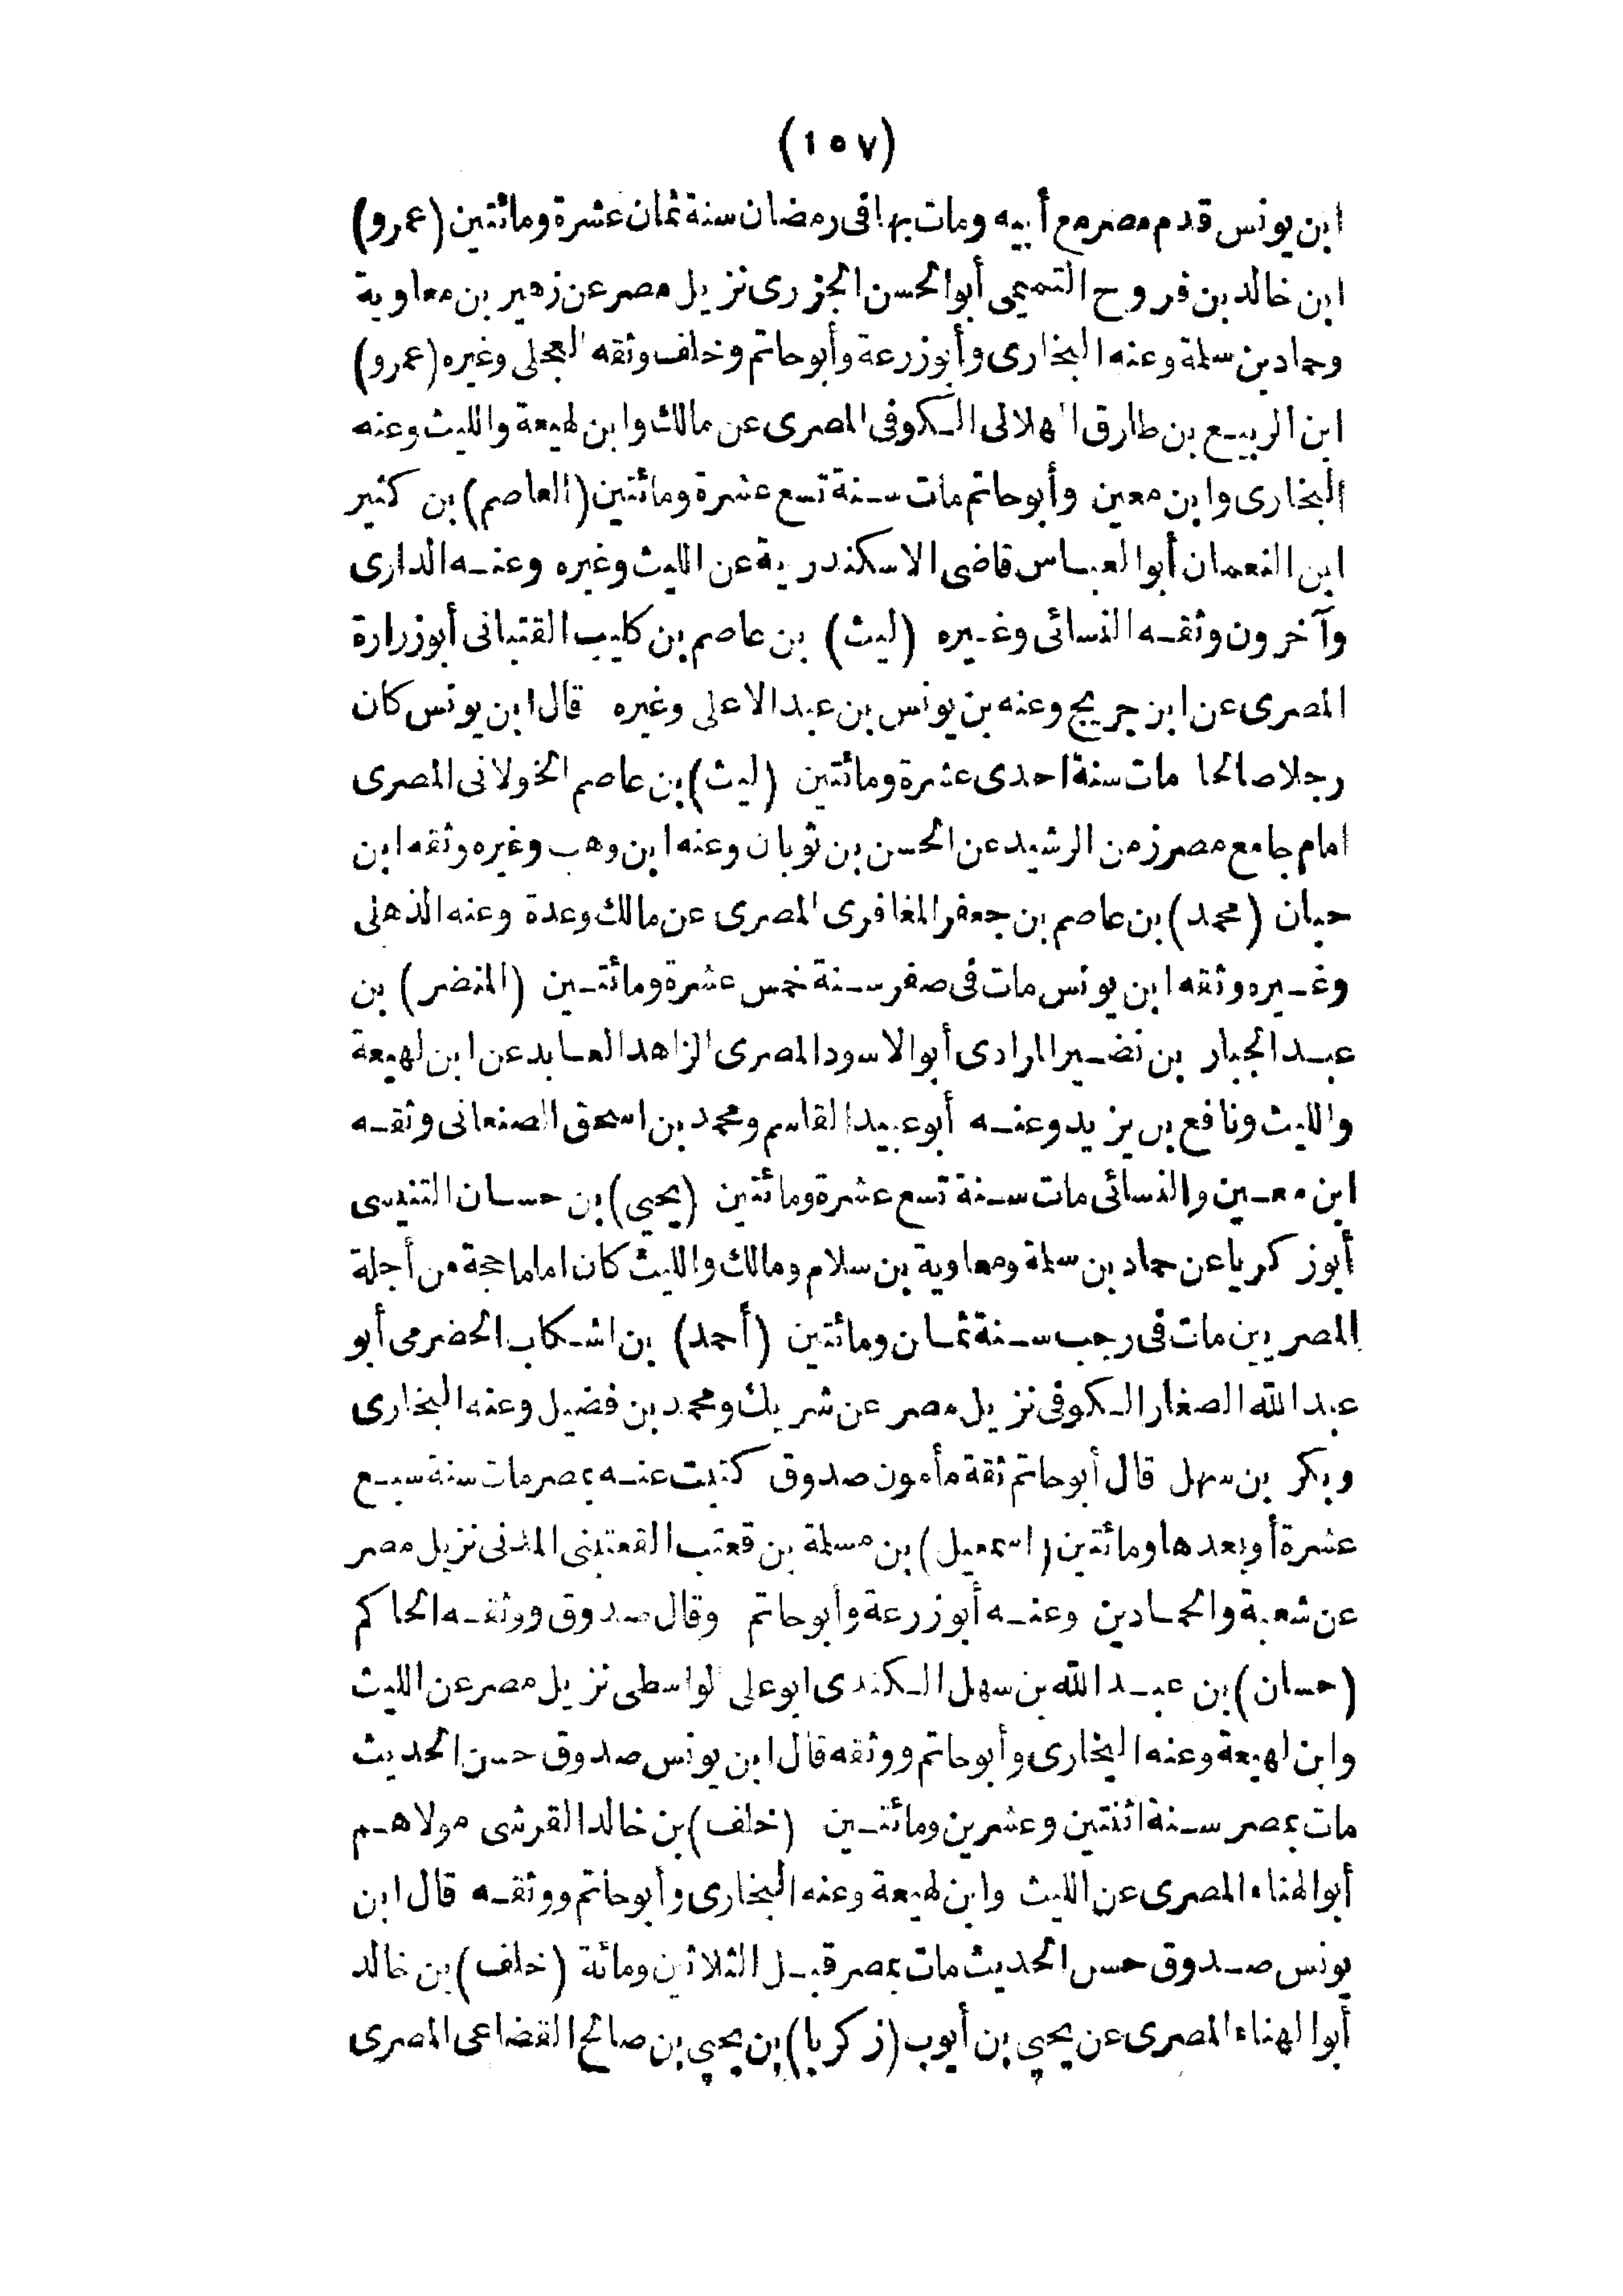 (١٥٧)
ابن يونس قدم مصر مع أبيه ومات بها فى رمضان سنة ثمان عشرة ومائتين (عمرو)
ابن خالد بن فروح التميمى أبو الحسن الجزرى نزيل مصر عن زهير بن معاوية
وحماد بن سلمة وعنه البخارى وأبو زرعة وأبو حاتم وخلف وثقه العجلى وغيره (عمرو)
ابن الربيع بن طارق الهلالى الكوفى المصرى عن مالك وابن لهيعة والليث وعنه
البخارى وابن معين وأبو حاتم مات سنة تسع عشرة ومائتين (العاصم) بن كثير
ابن النعمان أبو العباس قاضى الاسكندرية عن الليث وغيره وعنه الدارى
وآخرون وثقه النسائى وغيره (ليث) بن عاصم بن كليب القتبانى أبو زرارة
المصرى عن ابن جريج وعنه بن يونس بن عبد الاعلى وغيره قال ابن يونس كان
رجلا صالحا مات سنة احدى عشرة ومائتين (ليث) بن عاصم الخولانى المصرى
امام جامع مصر زمن الرشيد عن الحسن بن ثوبان وعنه ابن وهب وغيره وثقه ابن
حبان (محمد) بن عاصم بن جعفر المغافرى المصرى عن مالك وعدة وعنه الذهلى
وغيره وثقه ابن يونس مات فى صفر سنة خمس عشرة ومائتين (النضر) بن
عبد الجبار بن نضير المرادى أبو الاسود المصرى الزاهد العابد عن ابن لهيعة
والليث ونافع بن يزيد وعنه أبو عبيد القاسم ومحمد بن اسحق الصنعانى وثقه
ابن معين والنسائى مات سنة تسع عشرة ومائتين (يحيى) بن حسان التنيسى
أبو زكريا عن حماد بن سلمة ومعاوية بن سلام ومالك والليث كان اماما حجة من أجلة
المصريين مات فى رجب سنة ثمان ومائتين (أحمد) بن اشكاب الحضرمى أبو
عبد الله الصغار الكوفى نزيل مصر عن شريك ومحمد بن فضيل وعنه البخارى
وبكر بن سهل قال أبو حاتم ثقة مأمون صدوق كتبت عنه بمصر مات سنة سبع
عشرة أو بعدها ومائتين (اسمعيل) بن مسلمة بن قعنب القعتبنى المدنى نزيل مصر
عن شعبة والحمادين وعنه أبو زرعة وأبو حاتم وقال صدوق ووثقه الحاكم
(حسان) بن عبد الله بن سهل الكندى ابو على الواسطى نزيل مصر عن الليث
وابن لهيعة وعنه البخارى وأبو حاتم ووثقه قال ابن يونس صدوق حسن الحديث
مات بمصر سنة اثنتين وعشرين ومائتين (خلف) بن خالد القرشى مولاهم
أبو الهناء المصرى عن الليث وابن لهيعة وعنه البخارى وأبو حاتم ووثقه قال ابن
يونس صدوق حسن الحديث مات بمصر قبل الثلاثين ومائة (خلف) بن خالد
أبو الهناء المصرى عن يحيى بن أيوب (زكريا) بن يحيى بن صالح القضاعى المصرى